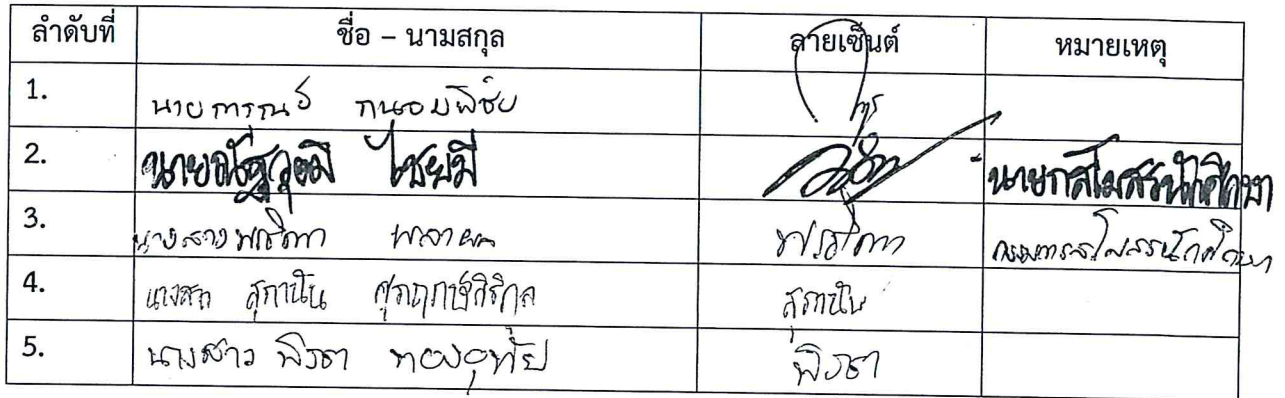 ลำดับที่ ชื่อ – นามสกุล ลายเซ็นต์ หมายเหตุ
1. นาย การณ์ ถนอมพิชัย
2. นายณัฐวุฒิ ไชยมี นายกสโมสรนักศึกษา
3. นางสาว พรธิตา พลาผล กรรมการสโมสรนักศึกษา
4. นางสาว สุภานัน สุภานัน
5. นางสาว พิรดา ทองอุทัย พิรดา